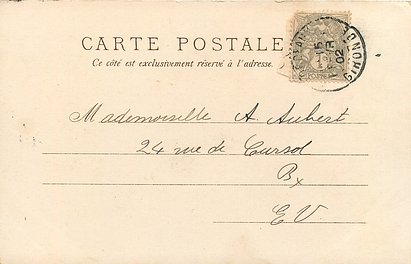 CARTE POSTALE
Ce côté est exclusivement réservé à l'adresse.
Mademoiselle A. Aubert
24 rue de Cursol
Bx
E V
POSTES
1c
15
02
GIRONDE